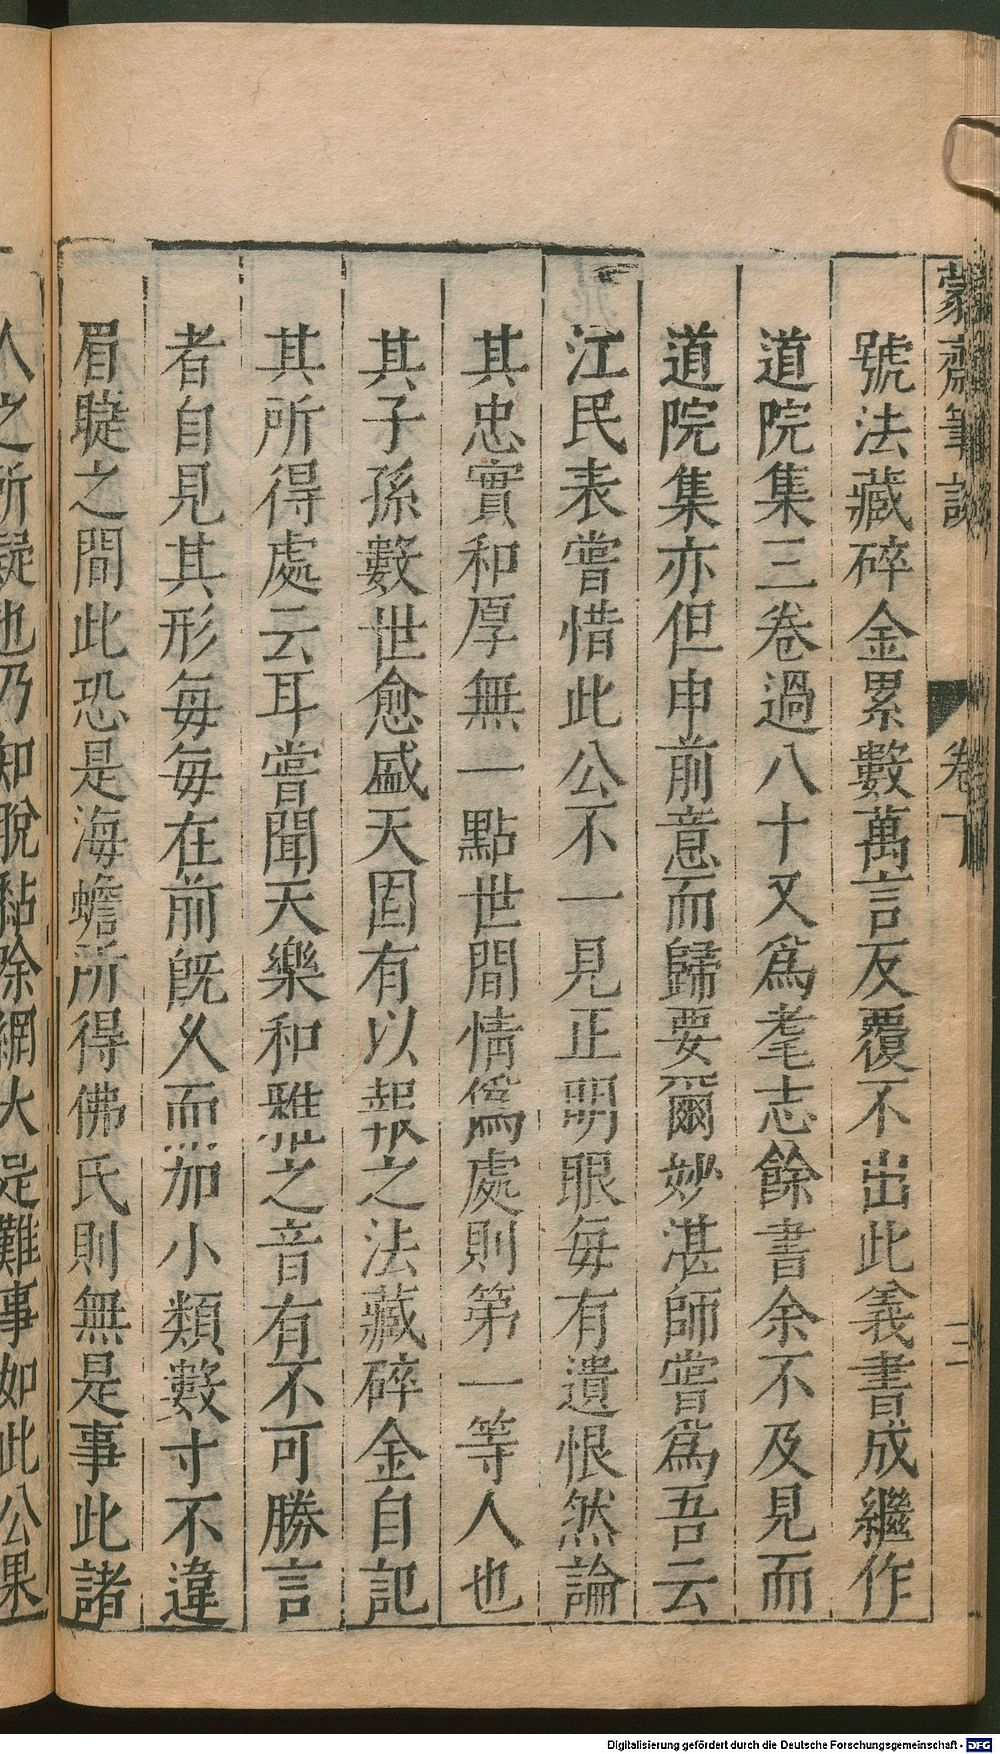 蒙齋筆談 卷下 三
號法藏碎金累數萬言反覆不出此義書成繼作
道院集三卷過八十又爲耄志餘書余不及見而
道院集亦但申前意而歸要爾妙湛師嘗爲吾云
江民表嘗惜此公不一見正明眼毎有遺恨然論
其忠實和厚無一點世間情僞處則第一等人也
其子孫數世愈盛天固有以報之法藏碎金自記
其所得處云耳嘗聞天樂和雅之音有不可勝言
者自見其形毎毎在前旣久而加小類數寸不違
眉睫之間此恐是海蟾所得佛氏則無是事此諸
人之所疑也乃知脫黏除網大是難事如此公果
Digitalisierung gefördert durch die Deutsche Forschungsgemeinschaft - DFG